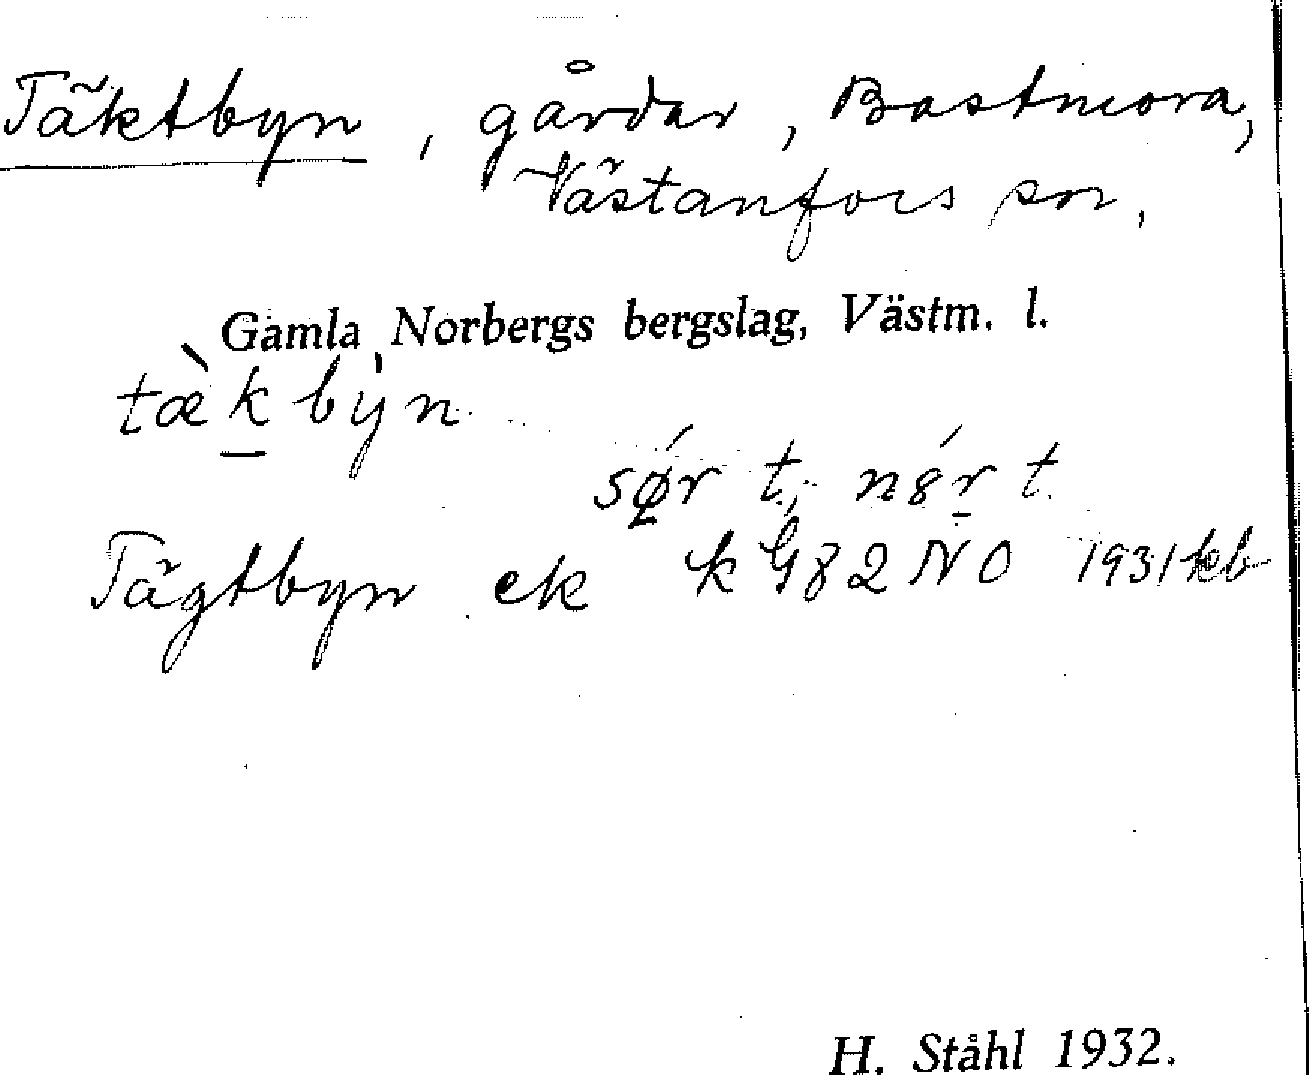 Täktbyn, gårdar, Bastmora,
Västanfors sn,
Gamla Norbergs bergslag, Västm. l.
tæ̀k býn
sǿr t, nór t
Tägtbyn ek k G82NO 1931 kb
H. Ståhl 1932.